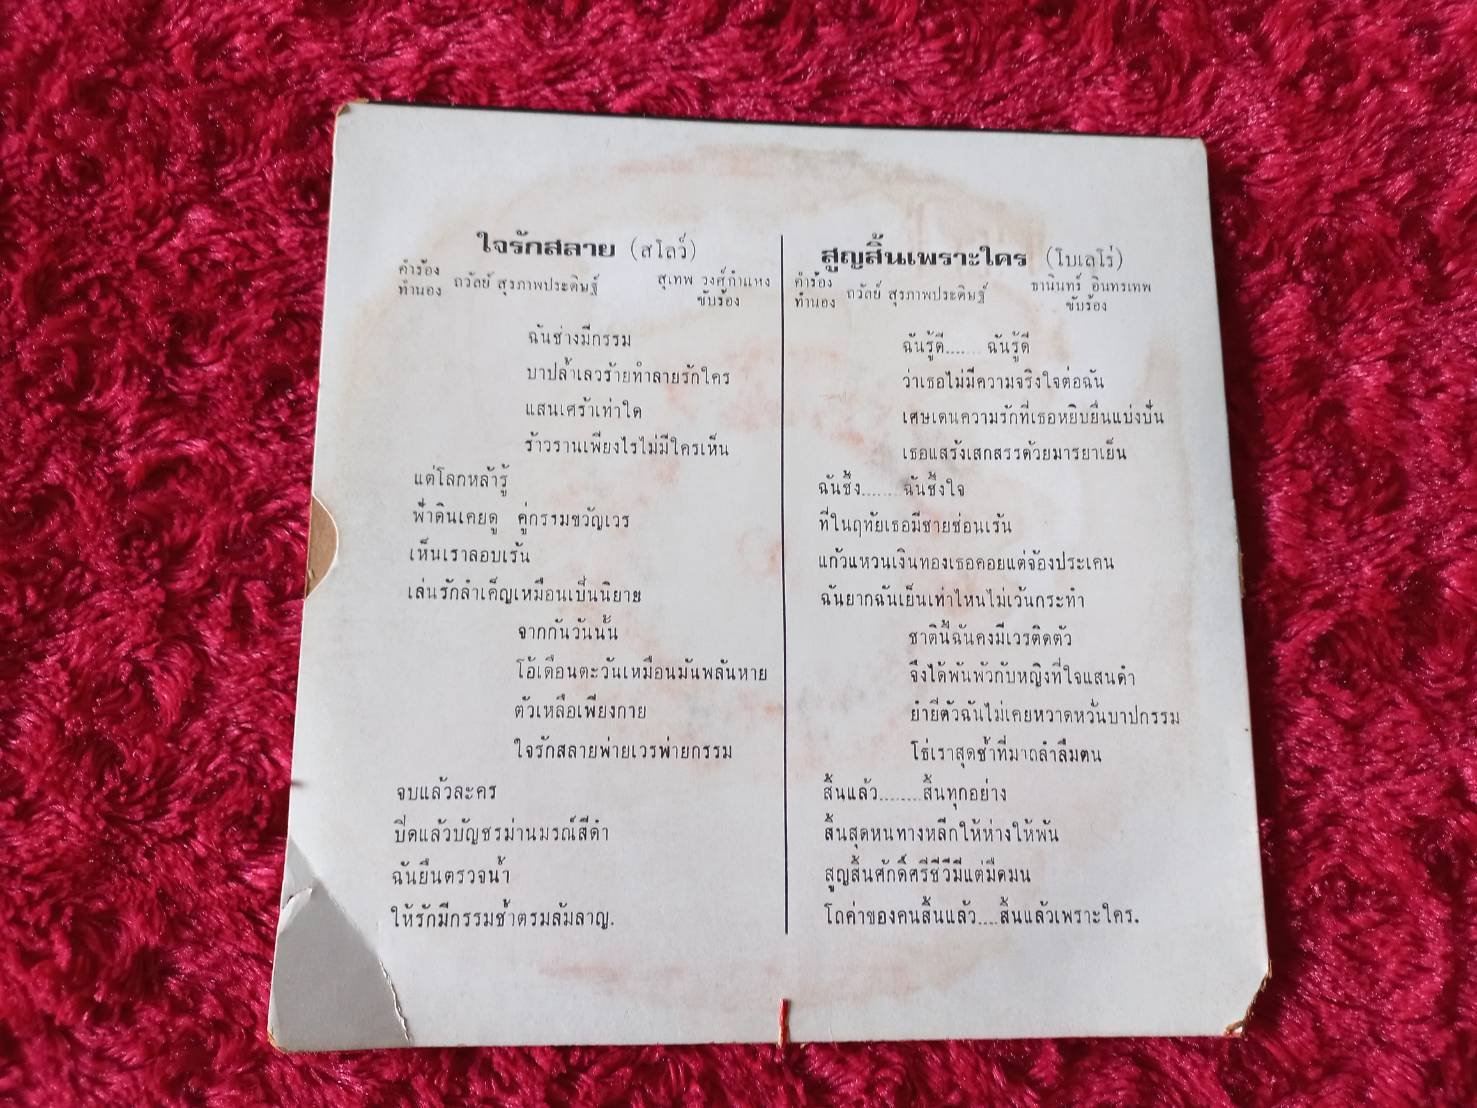 ใจรักสลาย (สโลว์)
คำร้อง
ทำนอง ถวัลย์ สุรภาพประดิษฐ์
สุเทพ วงศ์กำแหง
ขับร้อง
ฉันช่างมีกรรม
บาปล้ำเลวร้ายทำลายรักใคร
แสนเศร้าเท่าใด
ร้าวรานเพียงไรไม่มีใครเห็น
แต่โลกหล้ารู้
ฟ้าดินเคยดู คู่กรรมขวัญเวร
เห็นเราลอบเร้น
เล่นรักลำเค็ญเหมือนเป็นนิยาย
จากกันวันนั้น
โอ้เดือนตะวันเหมือนมันพลันหาย
ตัวเหลือเพียงกาย
ใจรักสลายพ่ายเวรพ่ายกรรม
จบแล้วละคร
ปิดแล้วบัญชรม่านมรณ์สีดำ
ฉันยืนตรวจน้ำ
ให้รักมีกรรมช้ำตรมล้มลาญ.
สูญสิ้นเพราะใคร (โบเลโร่)
คำร้อง
ทำนอง ถวัลย์ สุรภาพประดิษฐ์
ธานินทร์ อินทรเทพ
ขับร้อง
ฉันรู้ดี....... ฉันรู้ดี
ว่าเธอไม่มีความจริงใจต่อฉัน
เศษเดนความรักที่เธอหยิบยื่นแบ่งปัน
เธอแสร้งเสกสรรด้วยมารยาเย็น
ฉันซึ้ง........ฉันซึ้งใจ
ที่ในฤทัยเธอมีชายซ่อนเร้น
แก้วแหวนเงินทองเธอคอยแต่จ้องประเคน
ฉันยากฉันเย็นเท่าไหนไม่เว้นกระทำ
ชาตินี้ฉันคงมีเวรติดตัว
จึงได้พันพัวกับหญิงที่ใจแสนดำ
ย่ำยีตัวฉันไม่เคยหวาดหวั่นบาปกรรม
โธ่เราสุดช้ำที่มาถลำลืมตน
สิ้นแล้ว........สิ้นทุกอย่าง
สิ้นสุดหนทางหลีกให้ห่างให้พ้น
สูญสิ้นศักดิ์ศรีชีวีมีแต่มืดมน
โถค่าของคนสิ้นแล้ว....สิ้นแล้วเพราะใคร.